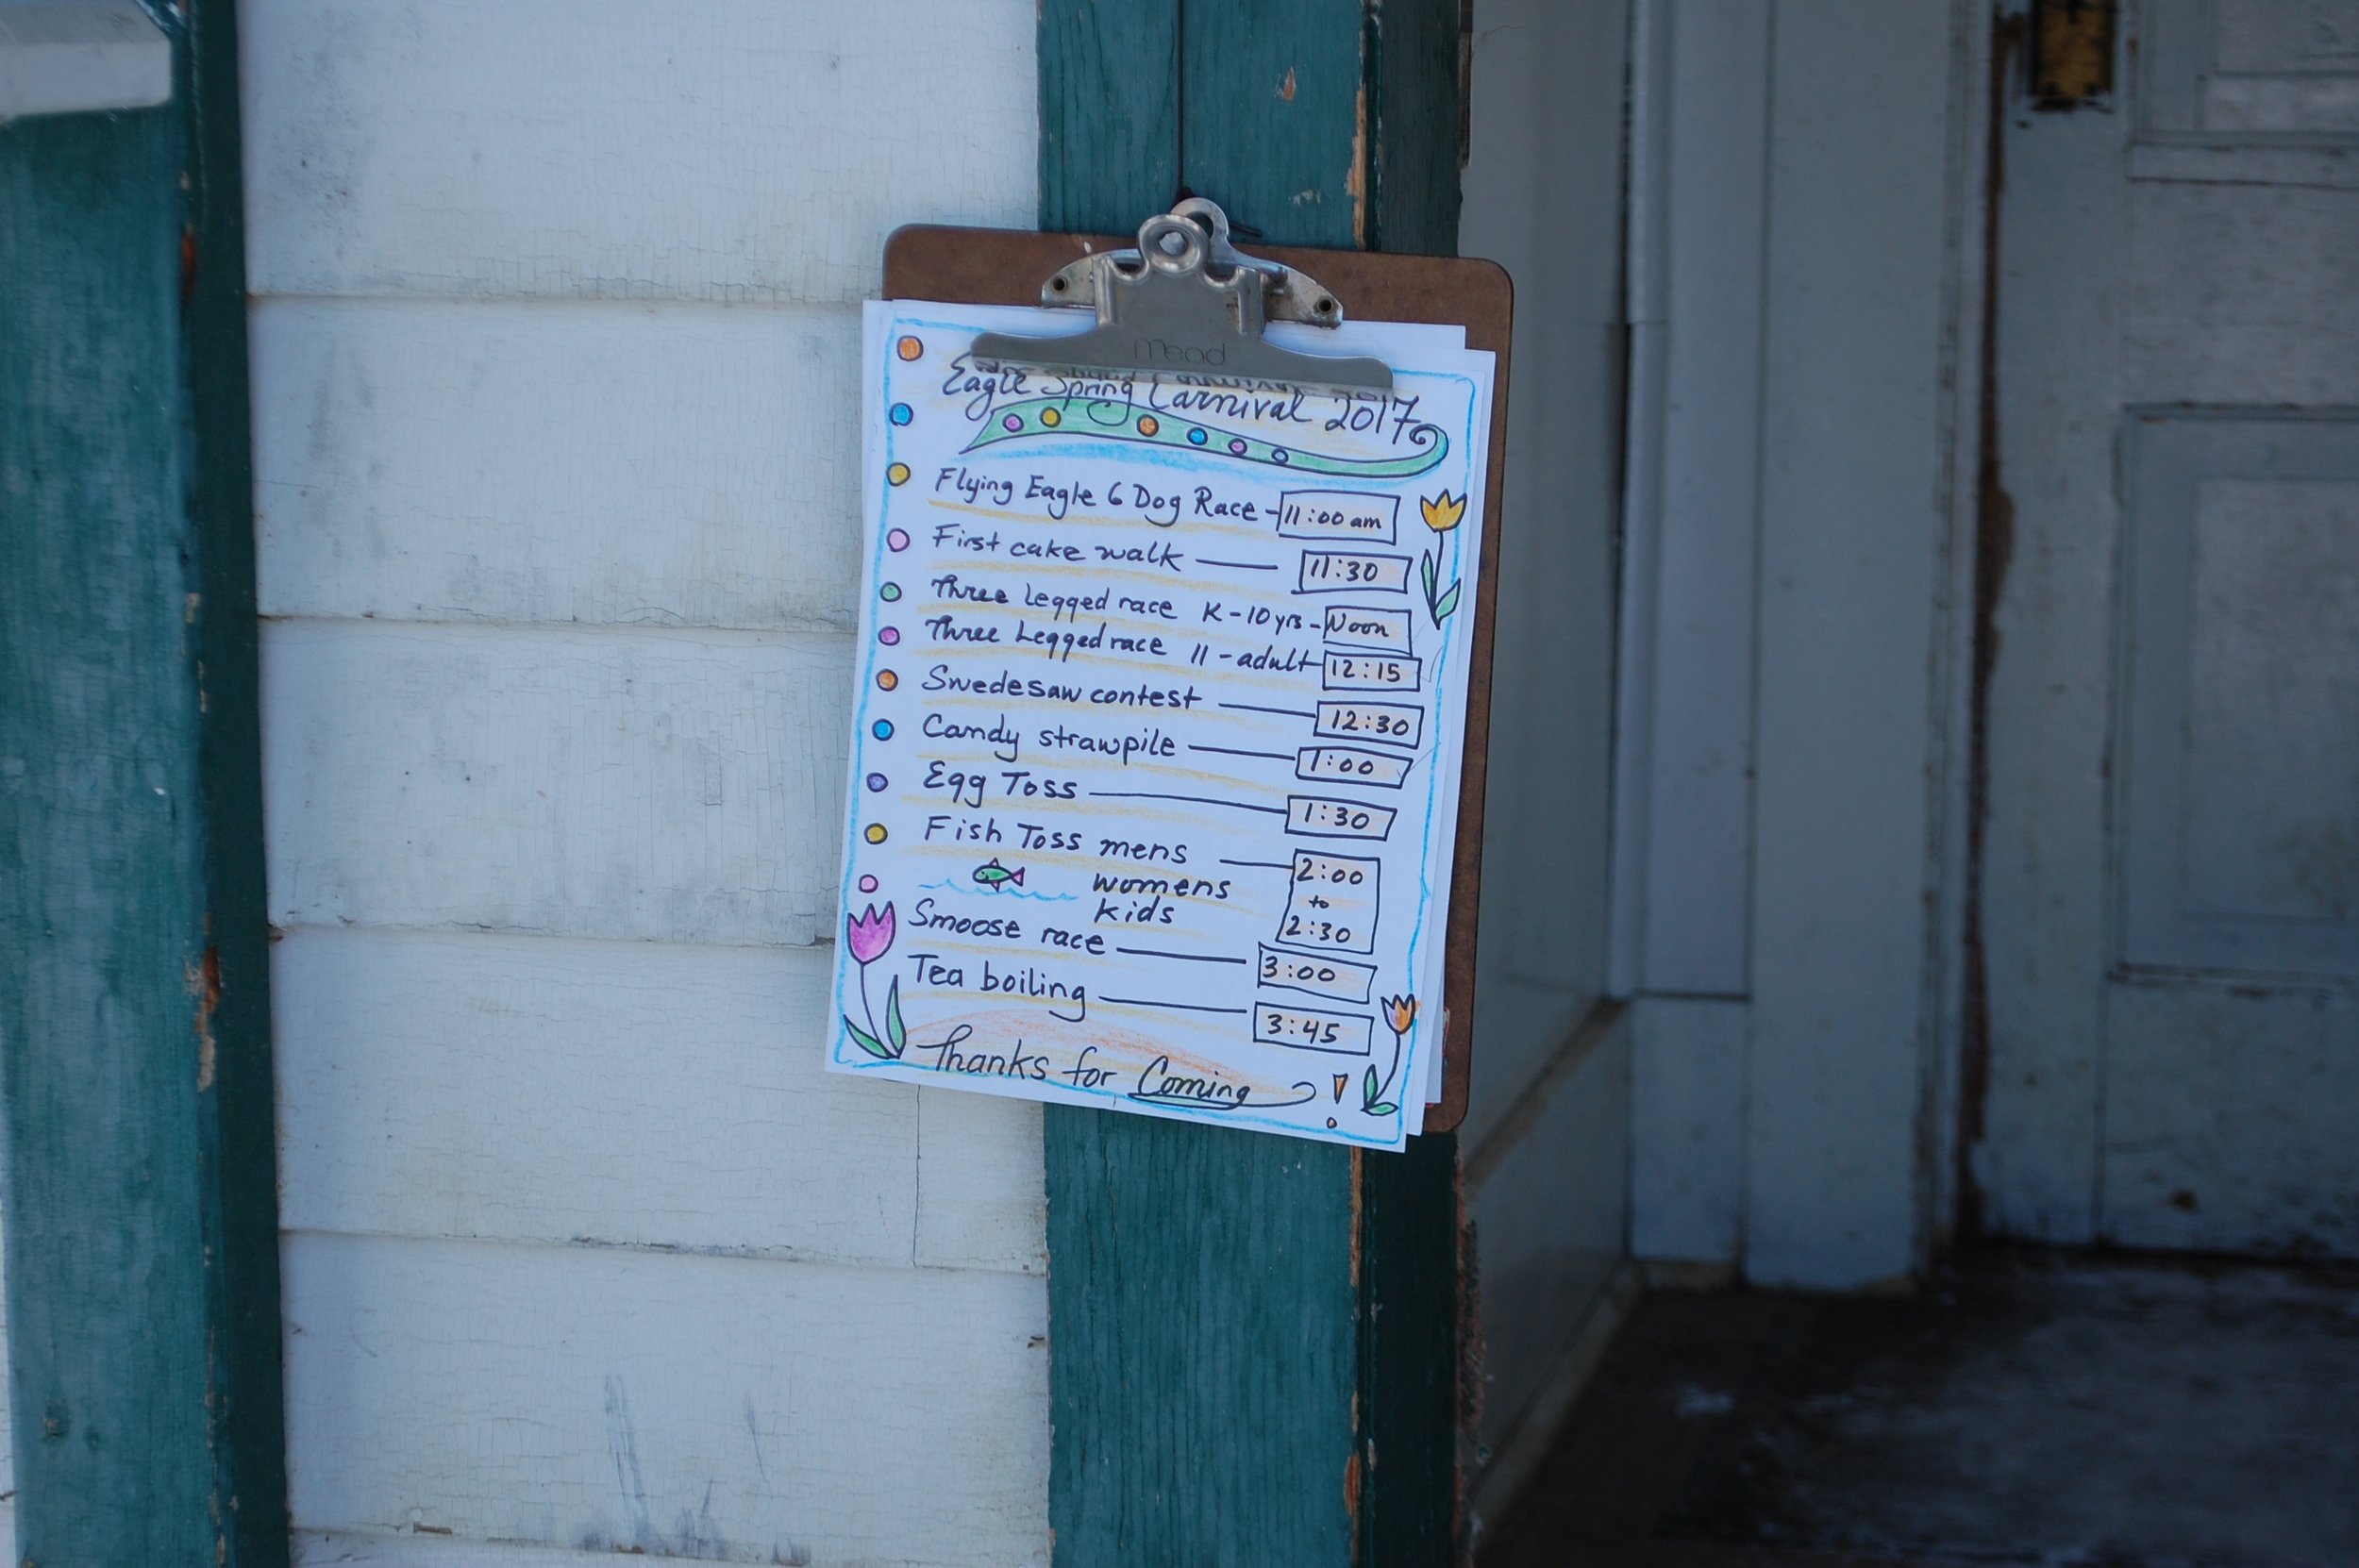 mead
Eagle Spring Carnival 2017
Flying Eagle 6 Dog Race - 11:00 am
First cake walk 11:30
Three Legged race K-10 yrs - Noon
Three Legged race 11-adult 12:15
Swedesaw contest 12:30
Candy strawpile 1:00
Egg Toss 1:30
Fish Toss mens 2:00
womens to
kids 2:30
Smoose race 3:00
Tea boiling 3:45
Thanks for Coming!